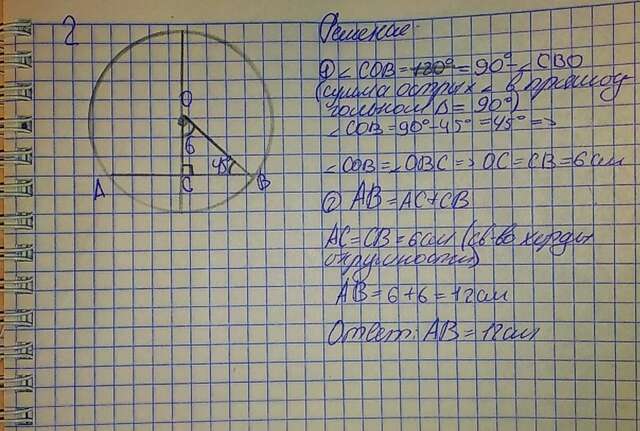 2
O
6
45°
A
C
B
Решение:
① ∠COB = 180° = 90° - ∠CBO
(сумма острых ∠ в прямоу
гольном Δ = 90°)
∠COB = 90° - 45° = 45° =>
∠COB = ∠OBC => OC = CB = 6см
② AB = AC + CB
AC = CB = 6см (св-во хорды
окружности)
AB = 6 + 6 = 12см
Ответ: AB = 12см